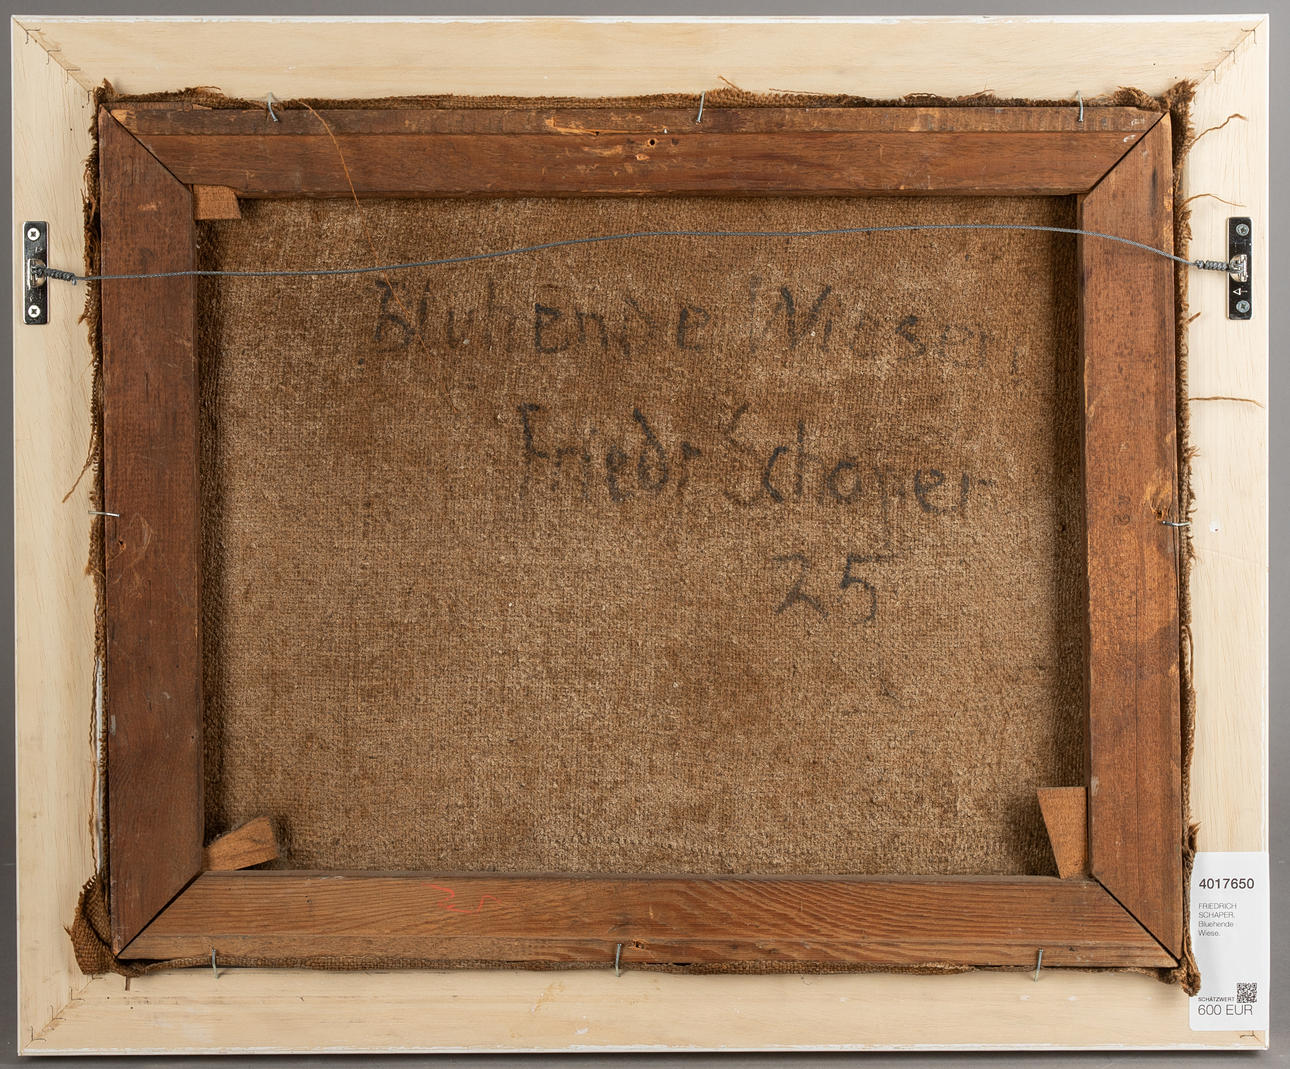 Blühende Wiesen,
Friedr Schaper
25
4017650
FRIEDRICH
SCHAPER,
Bluehende
Wiese.
SCHÄTZWERT
600 EUR